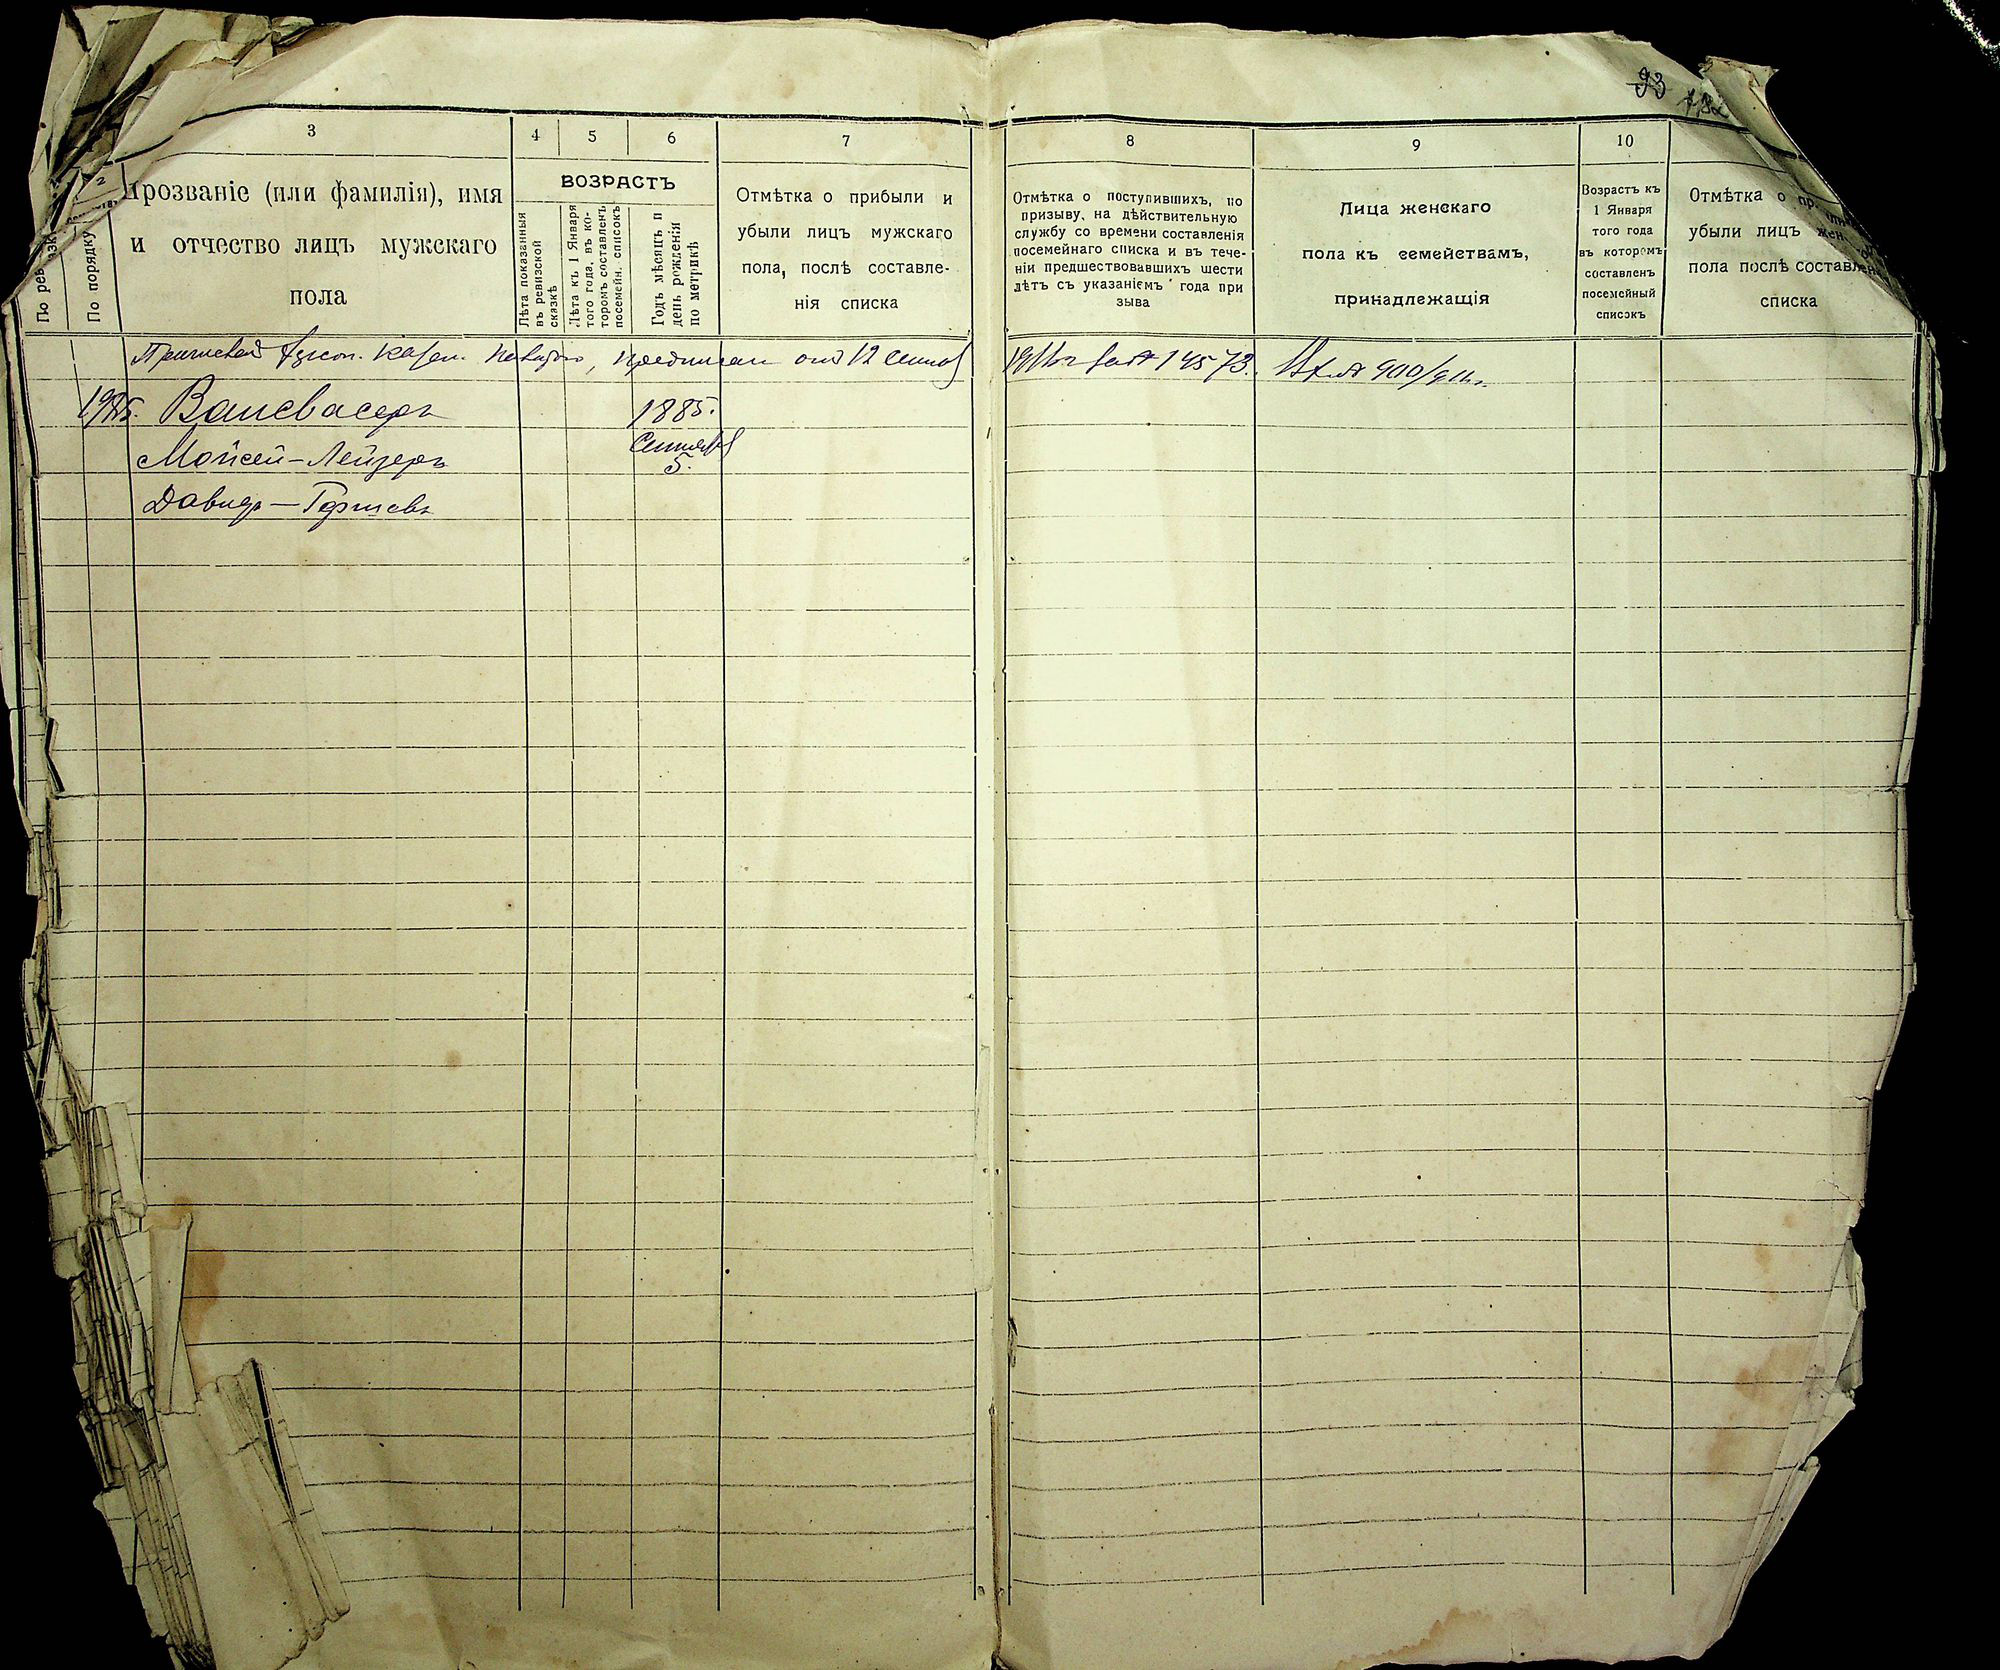 93
3
4
5
6
7
8
9
10
2
Прозваніе (или фамилія), имя
и отчество лицъ мужскаго
пола
ВОЗРАСТЪ
По порядку
Лѣта показанныя
въ ревизской
сказкѣ
Лѣта къ 1 Января
того года, въ ко-
торомъ составленъ
посемейн. списокъ
Годъ мѣсяцъ и
день рожденія
по метрикѣ
Отмѣтка о прибыли и
убыли лицъ мужскаго
пола, послѣ составле-
нія списка
Отмѣтка о поступившихъ, по
призыву, на дѣйствительную
службу со времени составленія
посемейнаго списка и въ тече-
ніи предшествовавшихъ шести
лѣтъ съ указаніемъ года при
зыва
Лица женскаго
пола къ семействамъ,
принадлежащія
Возрастъ къ
1 Января
того года
въ которомъ
составленъ
посемейный
списокъ
Отмѣтка о
убыли лицъ
пола послѣ составлен
списка
12
1885.
Мойсей-Лейзеръ
Сентября
5.
Давидъ-Гершевъ